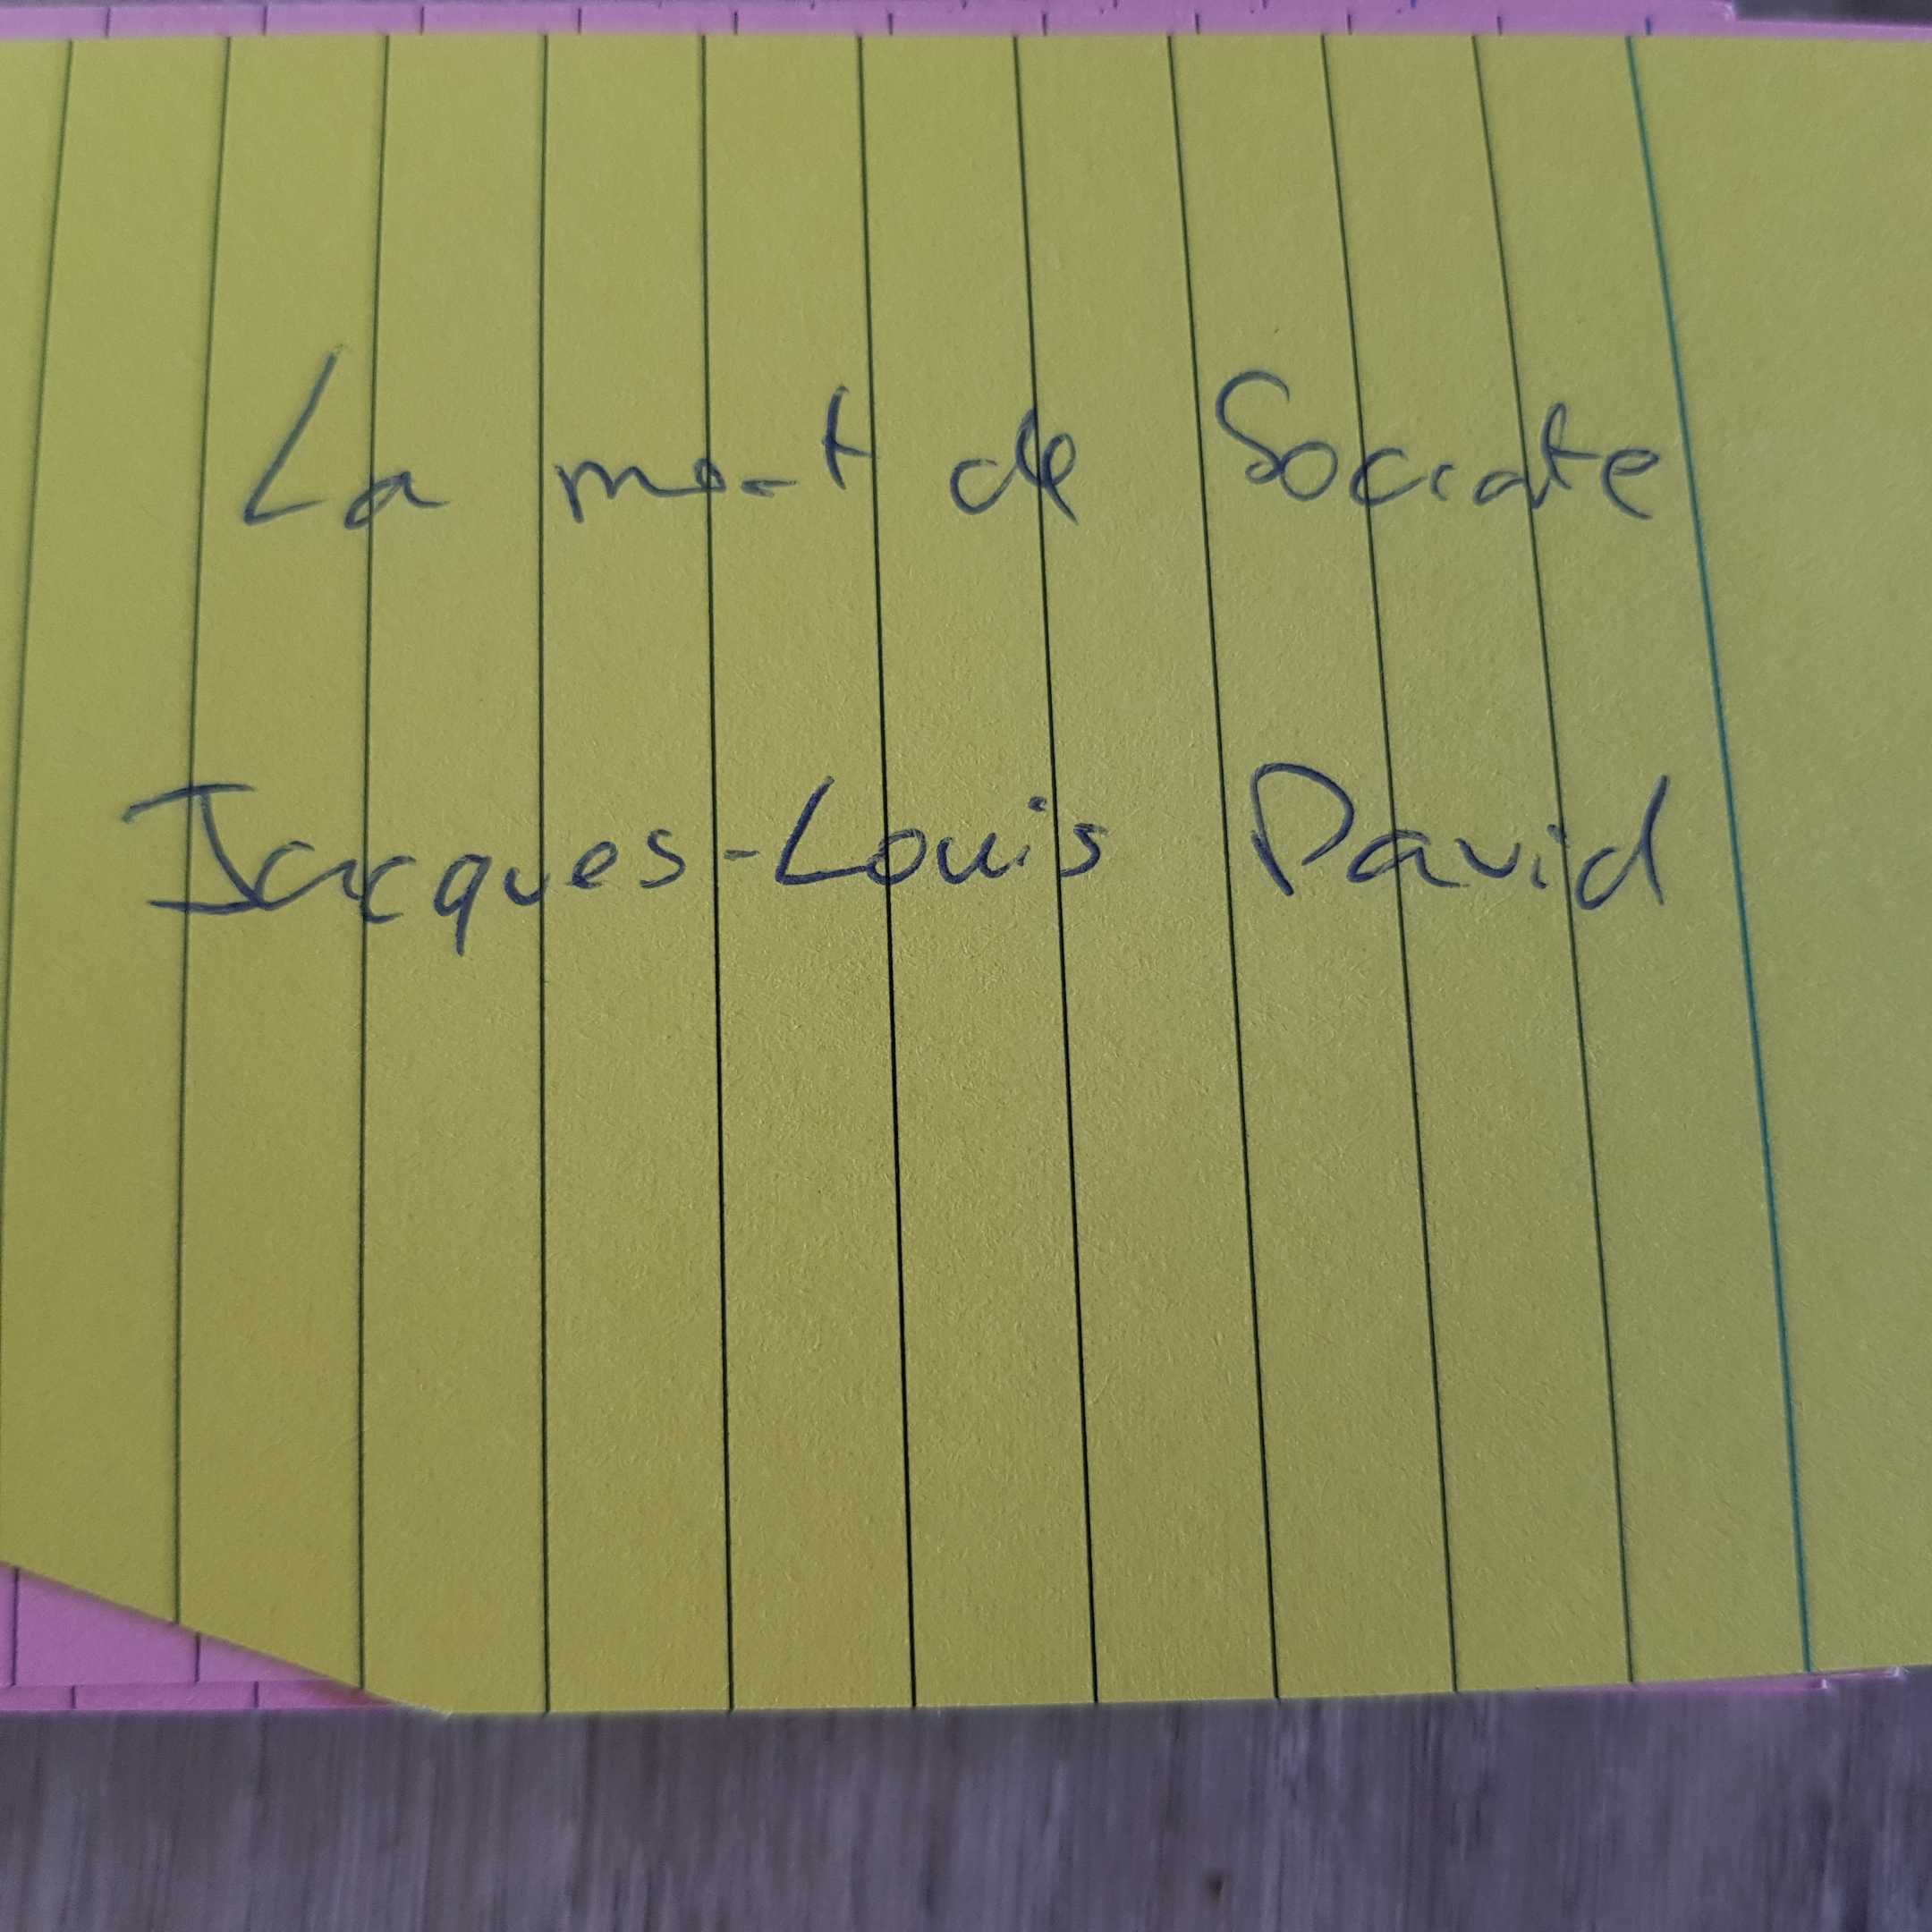 La mort de Socrate
Jacques-Louis David